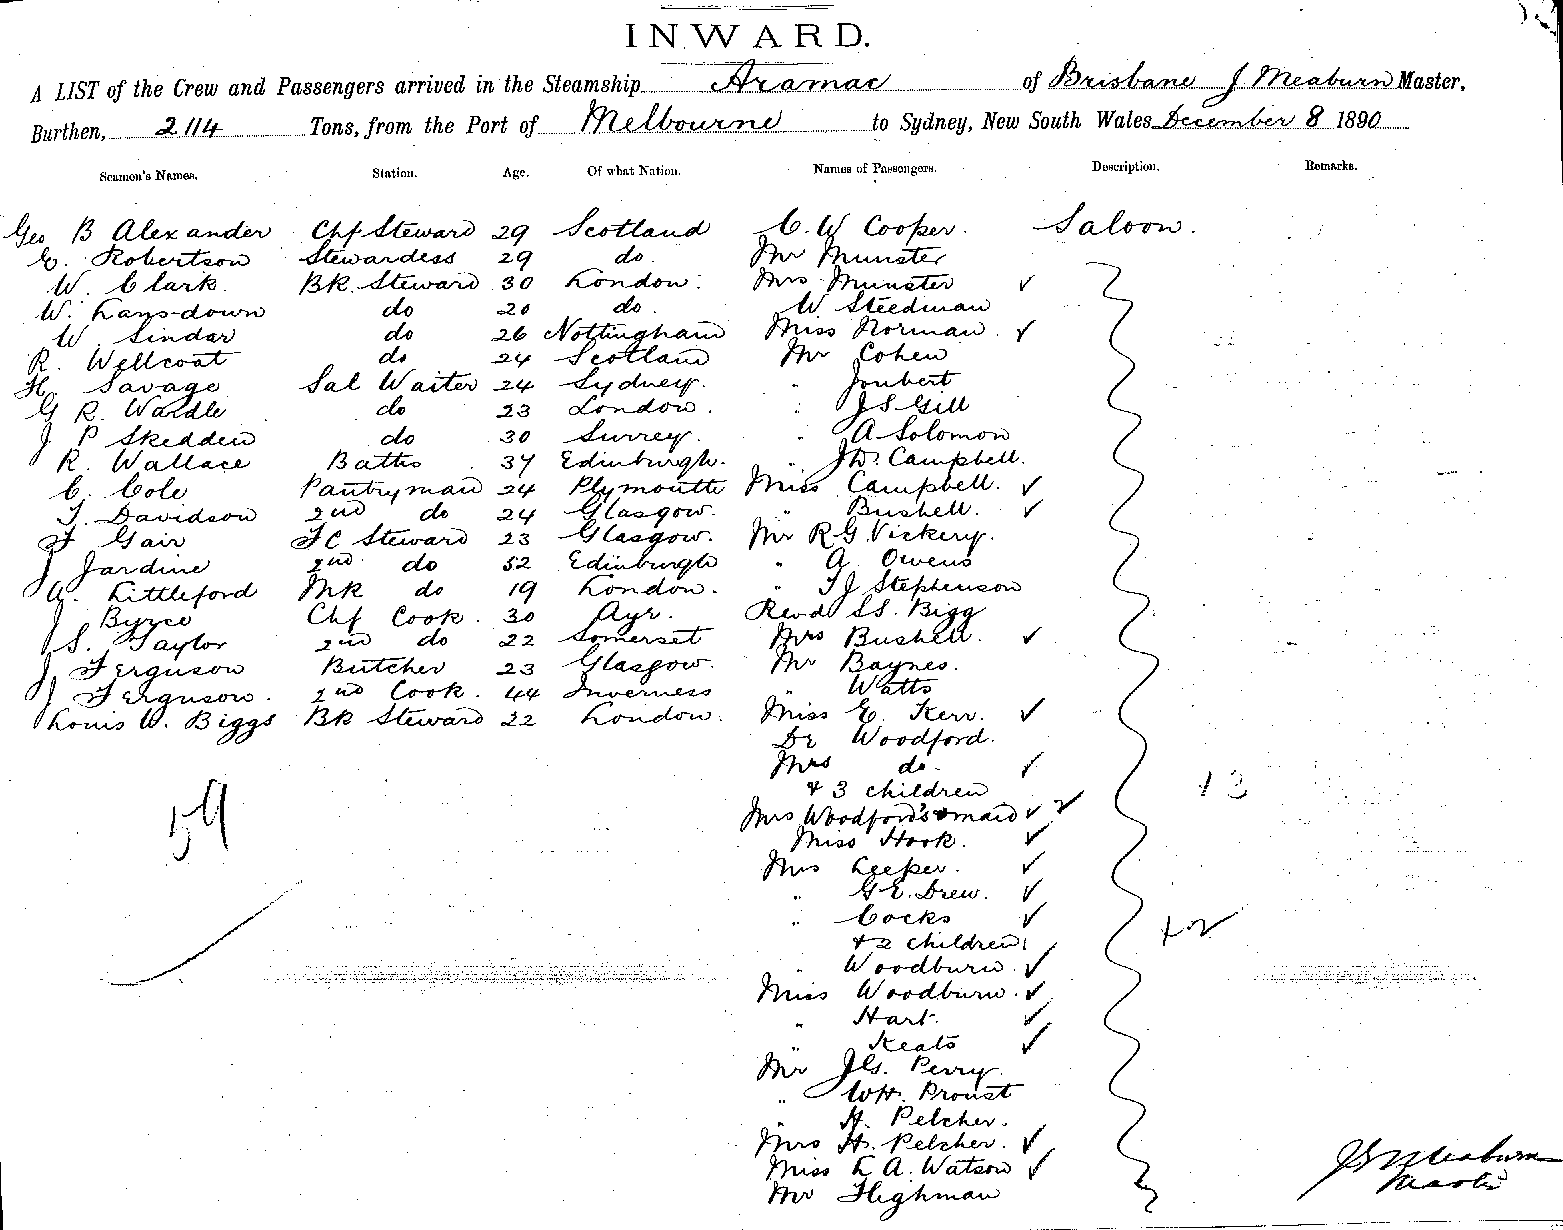 INWARD.
A LIST of the Crew and Passengers arrived in the Steamship Aramac of Brisbane J Meaburn Master,
Burthen, 2114 Tons, from the Port of Melbourne to Sydney, New South Wales December 8 1890
Seamen's Names. Station. Age. Of what Nation. Names of Passengers. Description. Remarks.
Geo B Alexander Chf Steward 29 Scotland C. W Cooper. Saloon.
E. Robertson Stewardess 29 do. Mr Munster
W. Clark. BR. Steward 30 London. Mrs Munster ✓
W. Lansdown do 20 do. W Steedman
W Sindar do 26 Nottingham Miss Norman. ✓
R. Wellcoat do 24 Scotland Mr Cohen
H. Savage Sal Waiter 24 Sydney. " Joubert
G R. Wardle do 23 London. " J S Gill
J P Skedden do 30 Surrey. " A Solomon
R. Wallace Baths 37 Edinburgh. " J D. Campbell.
C. Cole Pantryman 24 Plymouth Miss Campbell. ✓
T. Davidson 2nd do 24 Glasgow. " Bushell. ✓
F Gair FC Steward 23 Glasgow. Mr R G Vickery.
J Jardine 2nd do 52 Edinburgh " A Owens
A. Littleford MR do 19 London. " T J Stephenson
J Byrce Chf Cook. 30 Ayr. Revd S S. Bigg
J S. Taylor 2nd do 22 Somerset Mrs Bushell. ✓
J. Ferguson Butcher 23 Glasgow. Mr Baynes.
J Ferguson. 2nd Cook. 44 Inverness " Watts
Louis W. Biggs BR Steward 22 London. Miss E. Kerr. ✓
Dr Woodford.
Mrs do. ✓
& 3 children + 3
Mrs Woodford's maid ✓
59
Miss Hook. ✓
Mrs Leeper. ✓
" G E. Drew. ✓
" Cocks ✓
& 2 children + 2
" Woodburn. ✓
Miss Woodburn. ✓
" Hart. ✓
" Keats ✓
Mr J G. Perry.
" W H. Proust
" H. Pelcher.
Mrs H. Pelcher. ✓
Miss L A. Watson ✓
Mr Highman
J Meaburn
Master